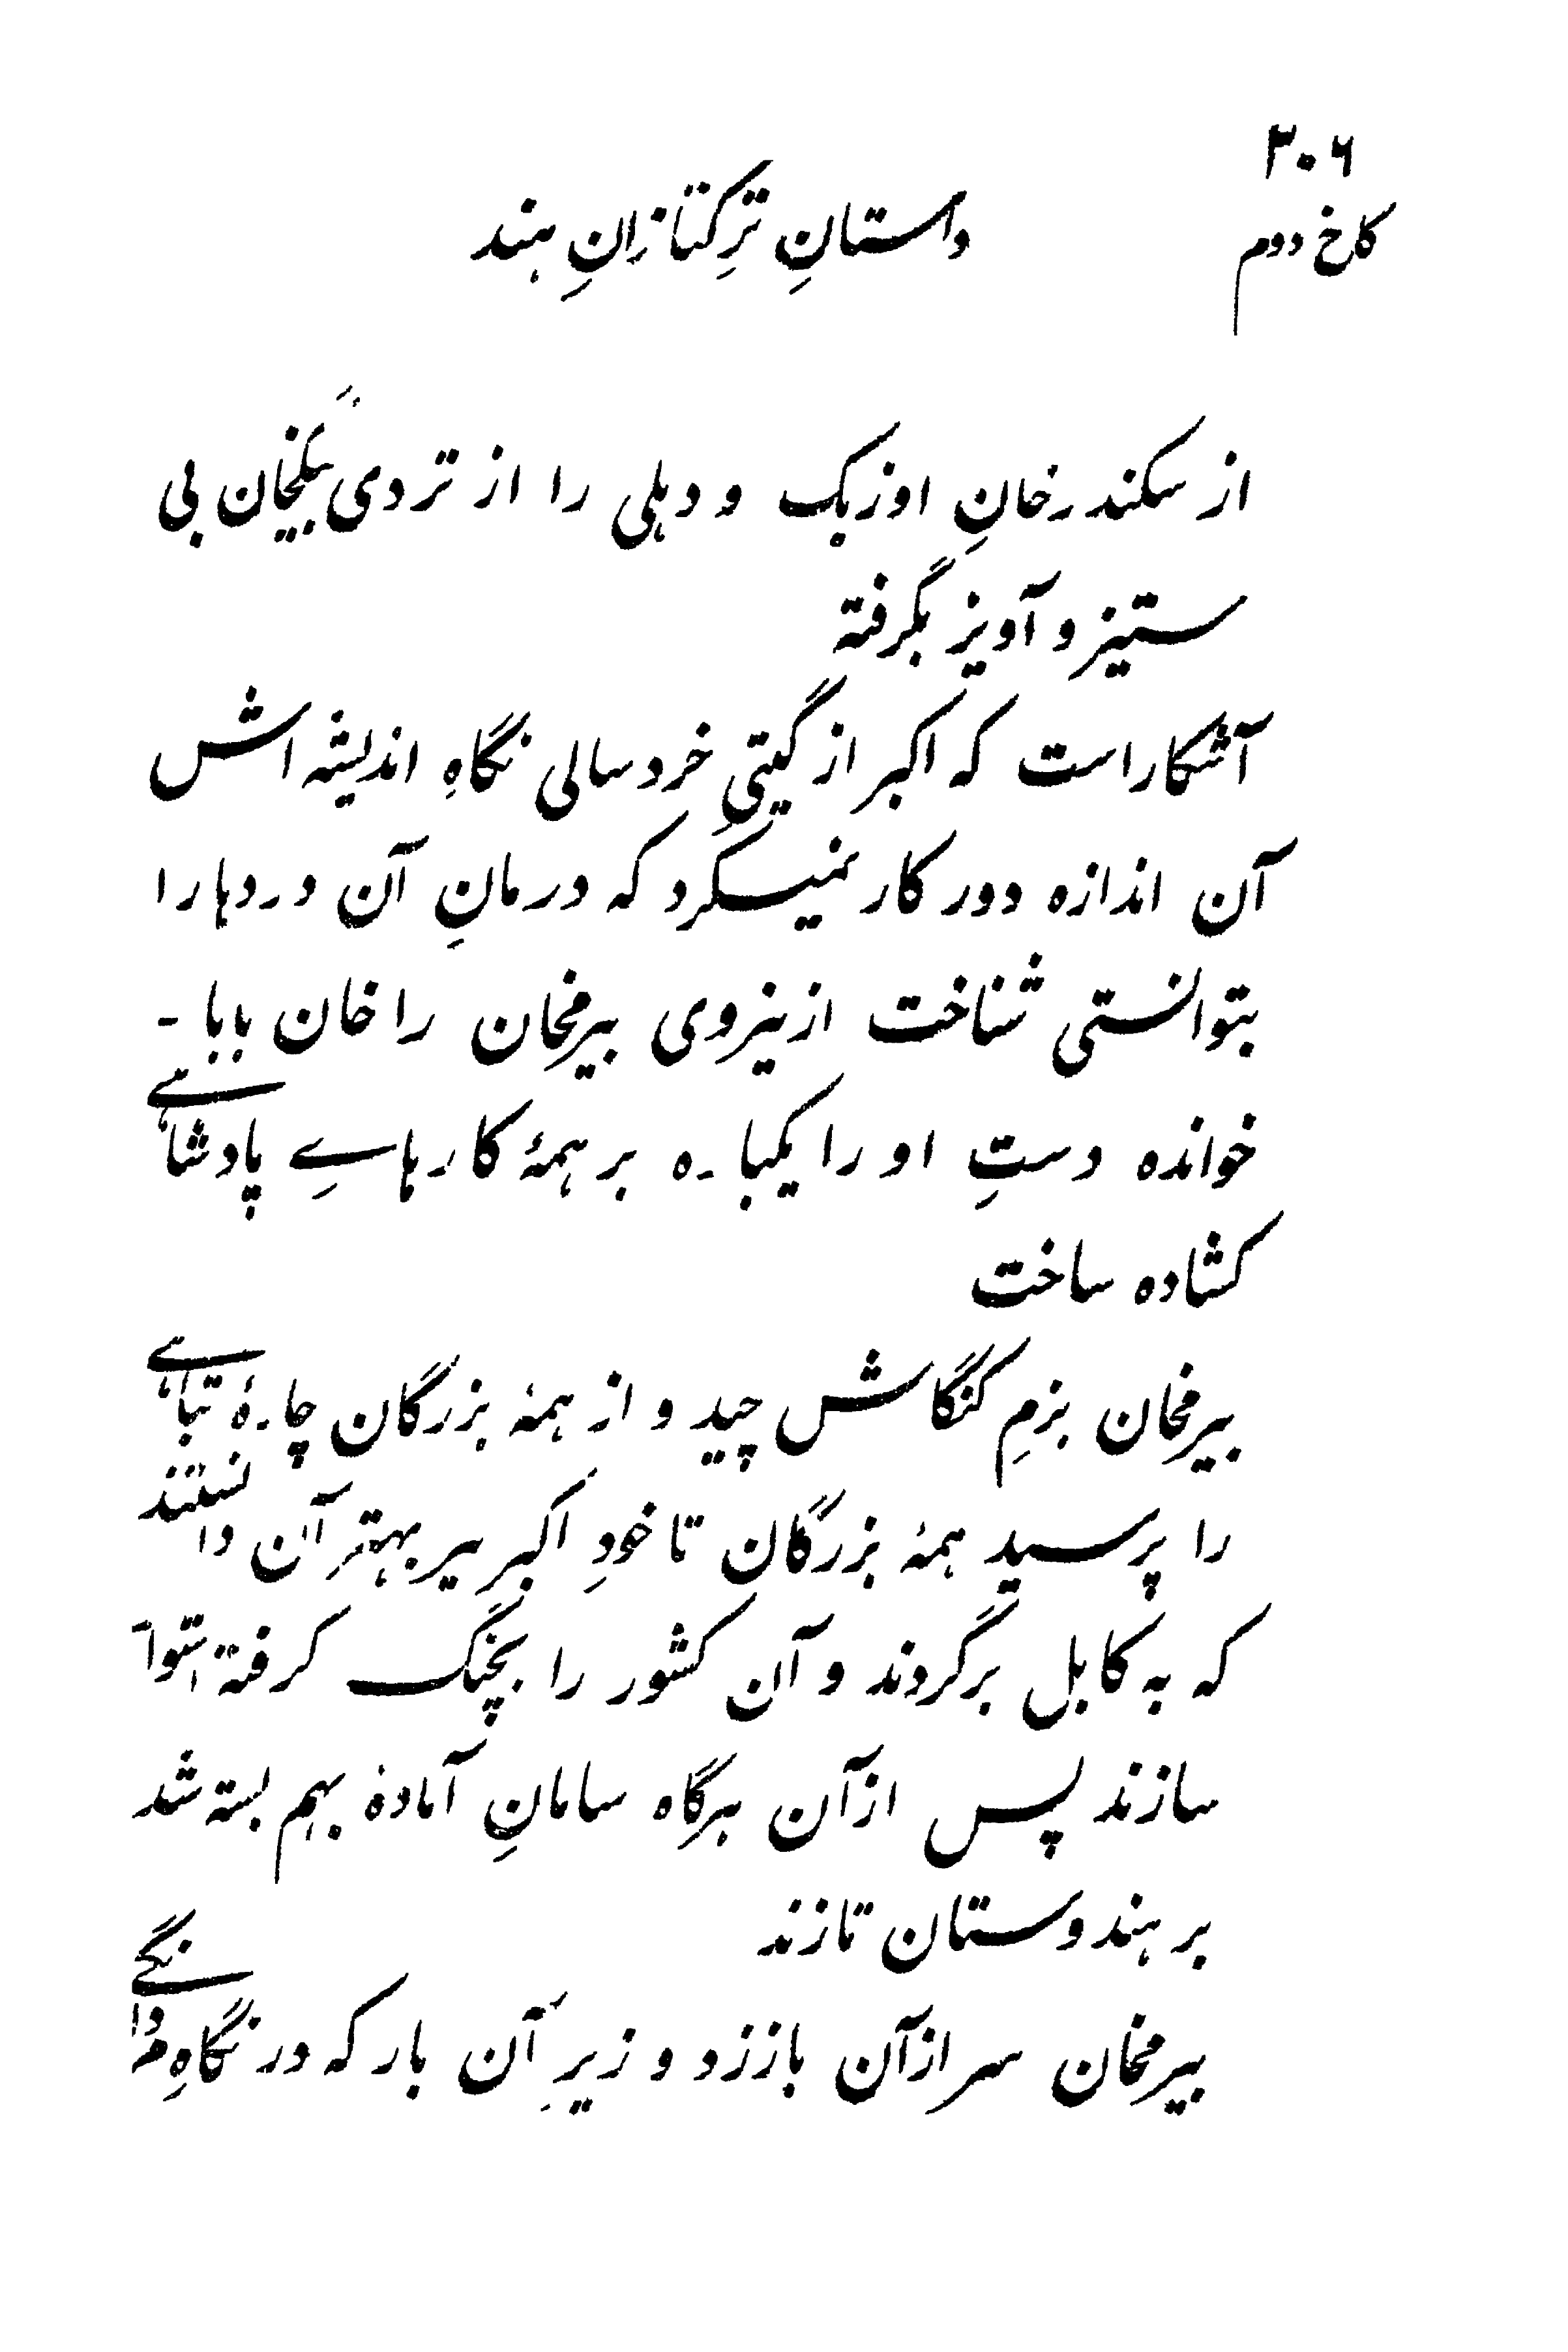 ۳۰۶
کاخ دوم
داستانِ ترکتازانِ هند
از سکندرخانِ اوزبک و دہلی را از تردی بیگخان بی
ستیز و آویز بگرفته
آشکار است که اکبر از گیتیِ خردسالی نگاهِ اندیشه اش
آن اندازه دور کار نمیکرد که درمانِ آن دردها را
بتوانستی شناخت ازینروی بیرمخان را خان بابا -
خوانده دستِ او را یکباره بر همۀ کارهاےِ پادشاہے
کشاده ساخت
بیرمخان بزمِ کنگاش چید و از همۀ بزرگان چارۀ تباہے
را پرسید همۀ بزرگان تا خودِ اکبر بیر بهتر آن دانستند
که به کابل برگردند و آن کشور را بچنگ گرفته استوا
سازند پس از آن هرگاه سامانِ آمادۀ بهم بسته شد
بر هندوستان تازند
بیرمخان سر از آن باز زد و زیرِ آن بار که در نگاهِ مردانگے